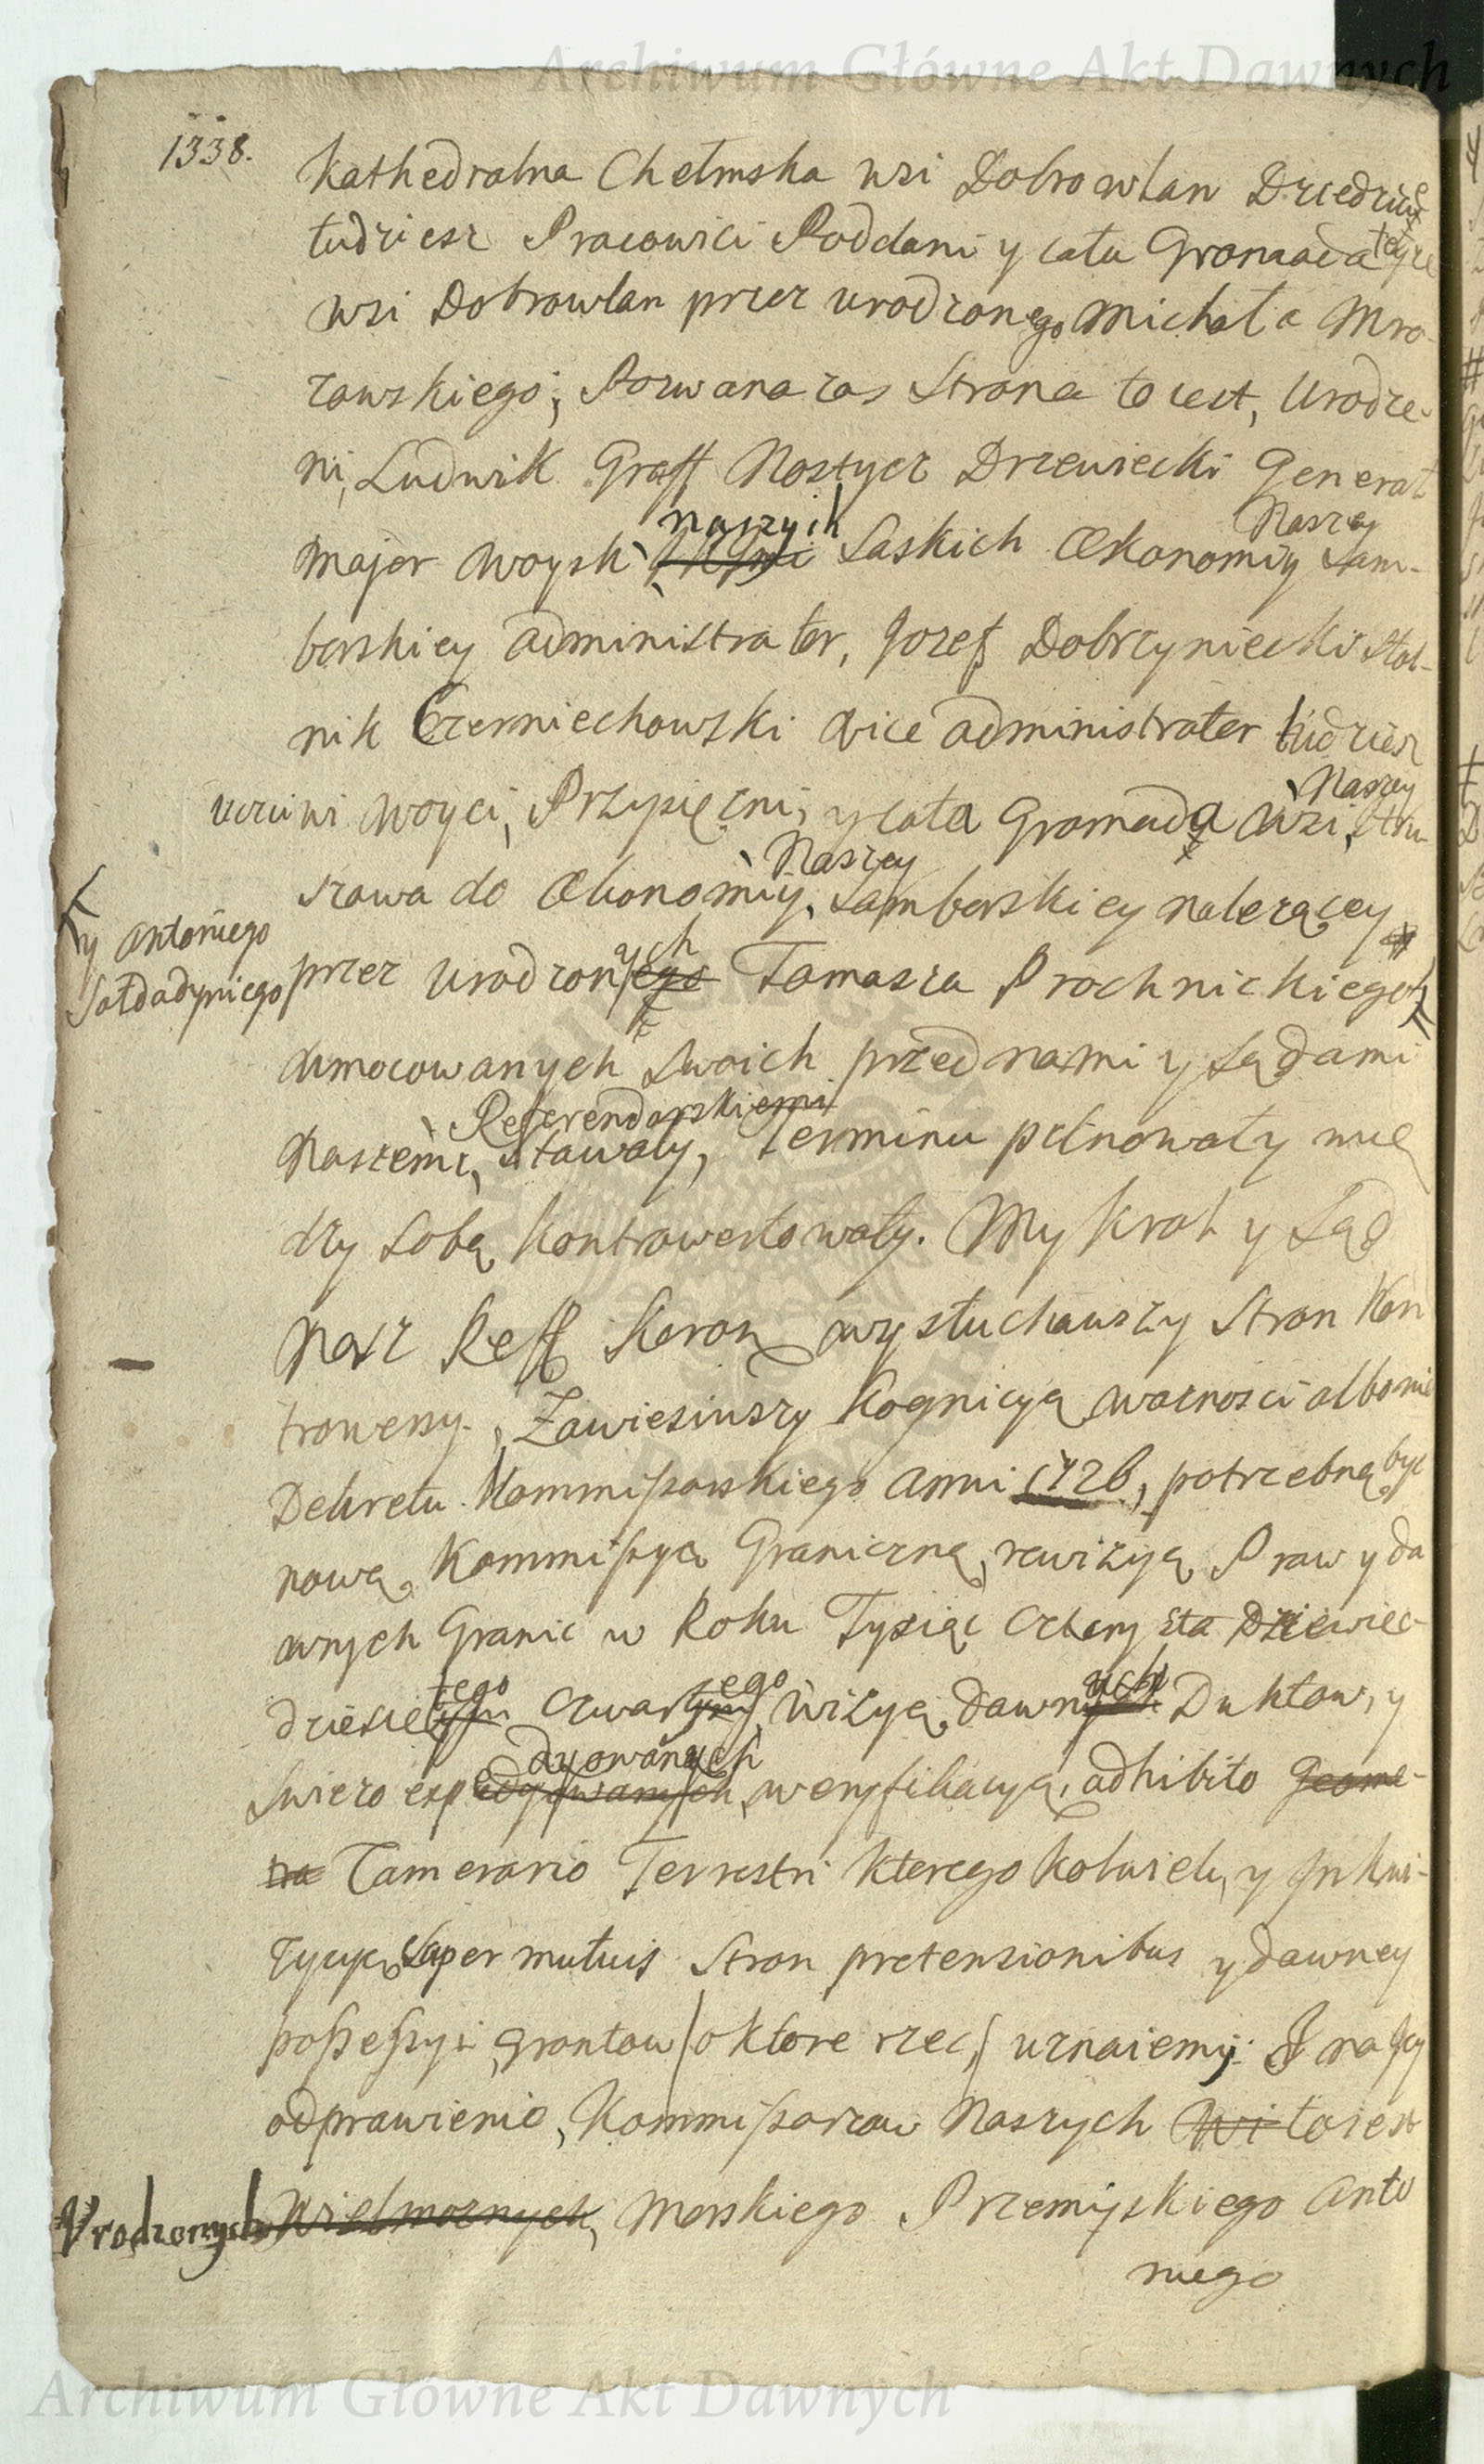 Archiwum Główne Akt Dawnych
1338.
Kathedralna Chełmska wsi Dobrowlan Dziedzic
tudziesz Pracowici Poddani y cała Gromada teyże
wsi Dobrowlan przez urodzonego Michała Mro-
zowskiego; Pozwana zas Strona to iest, Urodze-
ni, Ludwik Graff Nostycz Drzewiecki Generał
naszych Naszey
Major Woysk Saskich Œkonomiy Sam-
borskiey administrator, Jozef Dobrzyniecki Stol-
nik Czerniechowski vice administrator tudziesz
Naszey
uczciwi Woyci, Przysięzni, y cała Gromada Wsi,
Naszey
szowa do Œkonomiy Samborskiey nalezącey
y Antoniego
Sołdadyniego
ych
przez urodzonego Tomasza Prochnickiego
umocowanych swoich przed nami y Sądami
Referendarskiemi
Naszemi, stawały, Terminu pilnowały mie
dzy sobą kontrowertowały. My Krol y Sąd
Nasz Reff Koron wysłuchawszy Stron Kon
trowersy, Zawiesiwszy kognicyą waznosci albo nie
Dekretu Kommissarskiego Anni 1726, potrzebną byc
nową Kommissyą Graniczną, rewizyą Praw y da
wnych Granic w Roku Tysiąc Cztery sta Dziewiec-
tego ego ych
dziesiętym Czwartym, wizyą dawnych Duktow, y
dyowanych
swiezo expedyowanych weryfikacyą, adhibito Geome-
tra Camerario Terrestri ktoregokolwiek, y Inkwi-
zycyą super mutuis Stron pretensionibus y dawney
possessyi gruntow / o ktore rzecz / uznaiemy: I na Jey
odprawienie, Kommissarzow Naszych Wi to iest
Urodzonych Wielmoznych, Morskiego Przemyskiego Anto
niego
Archiwum Główne Akt Dawnych